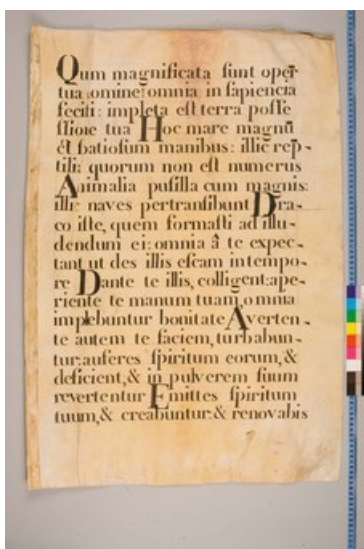 Qum magnificata ſunt oper̄
tua domine: omnia in ſapiencia
feciti: impleta eſt terra poſſe
ſſione tua Hoc mare magnū
& ſpatioſum manibus: illic rep-
tilia: quorum non eſt numerus
Animalia puſilla cum magnis:
illic naves pertranſibunt Dra-
co iſte, quem formaſti ad illu-
dendum ei: omnia â te expec-
tant ut des illis eſcam in tempo-
re Dante te illis, colligent: ape-
riente te manum tuam omnia
implebuntur bonitate Averten-
te autem te faciem, turbabun-
tur: auferes ſpiritum eorum, &
deficient, & in pulverem ſuum
revertentur Emittes ſpiritum
tuum, & creabuntur: & renovabis